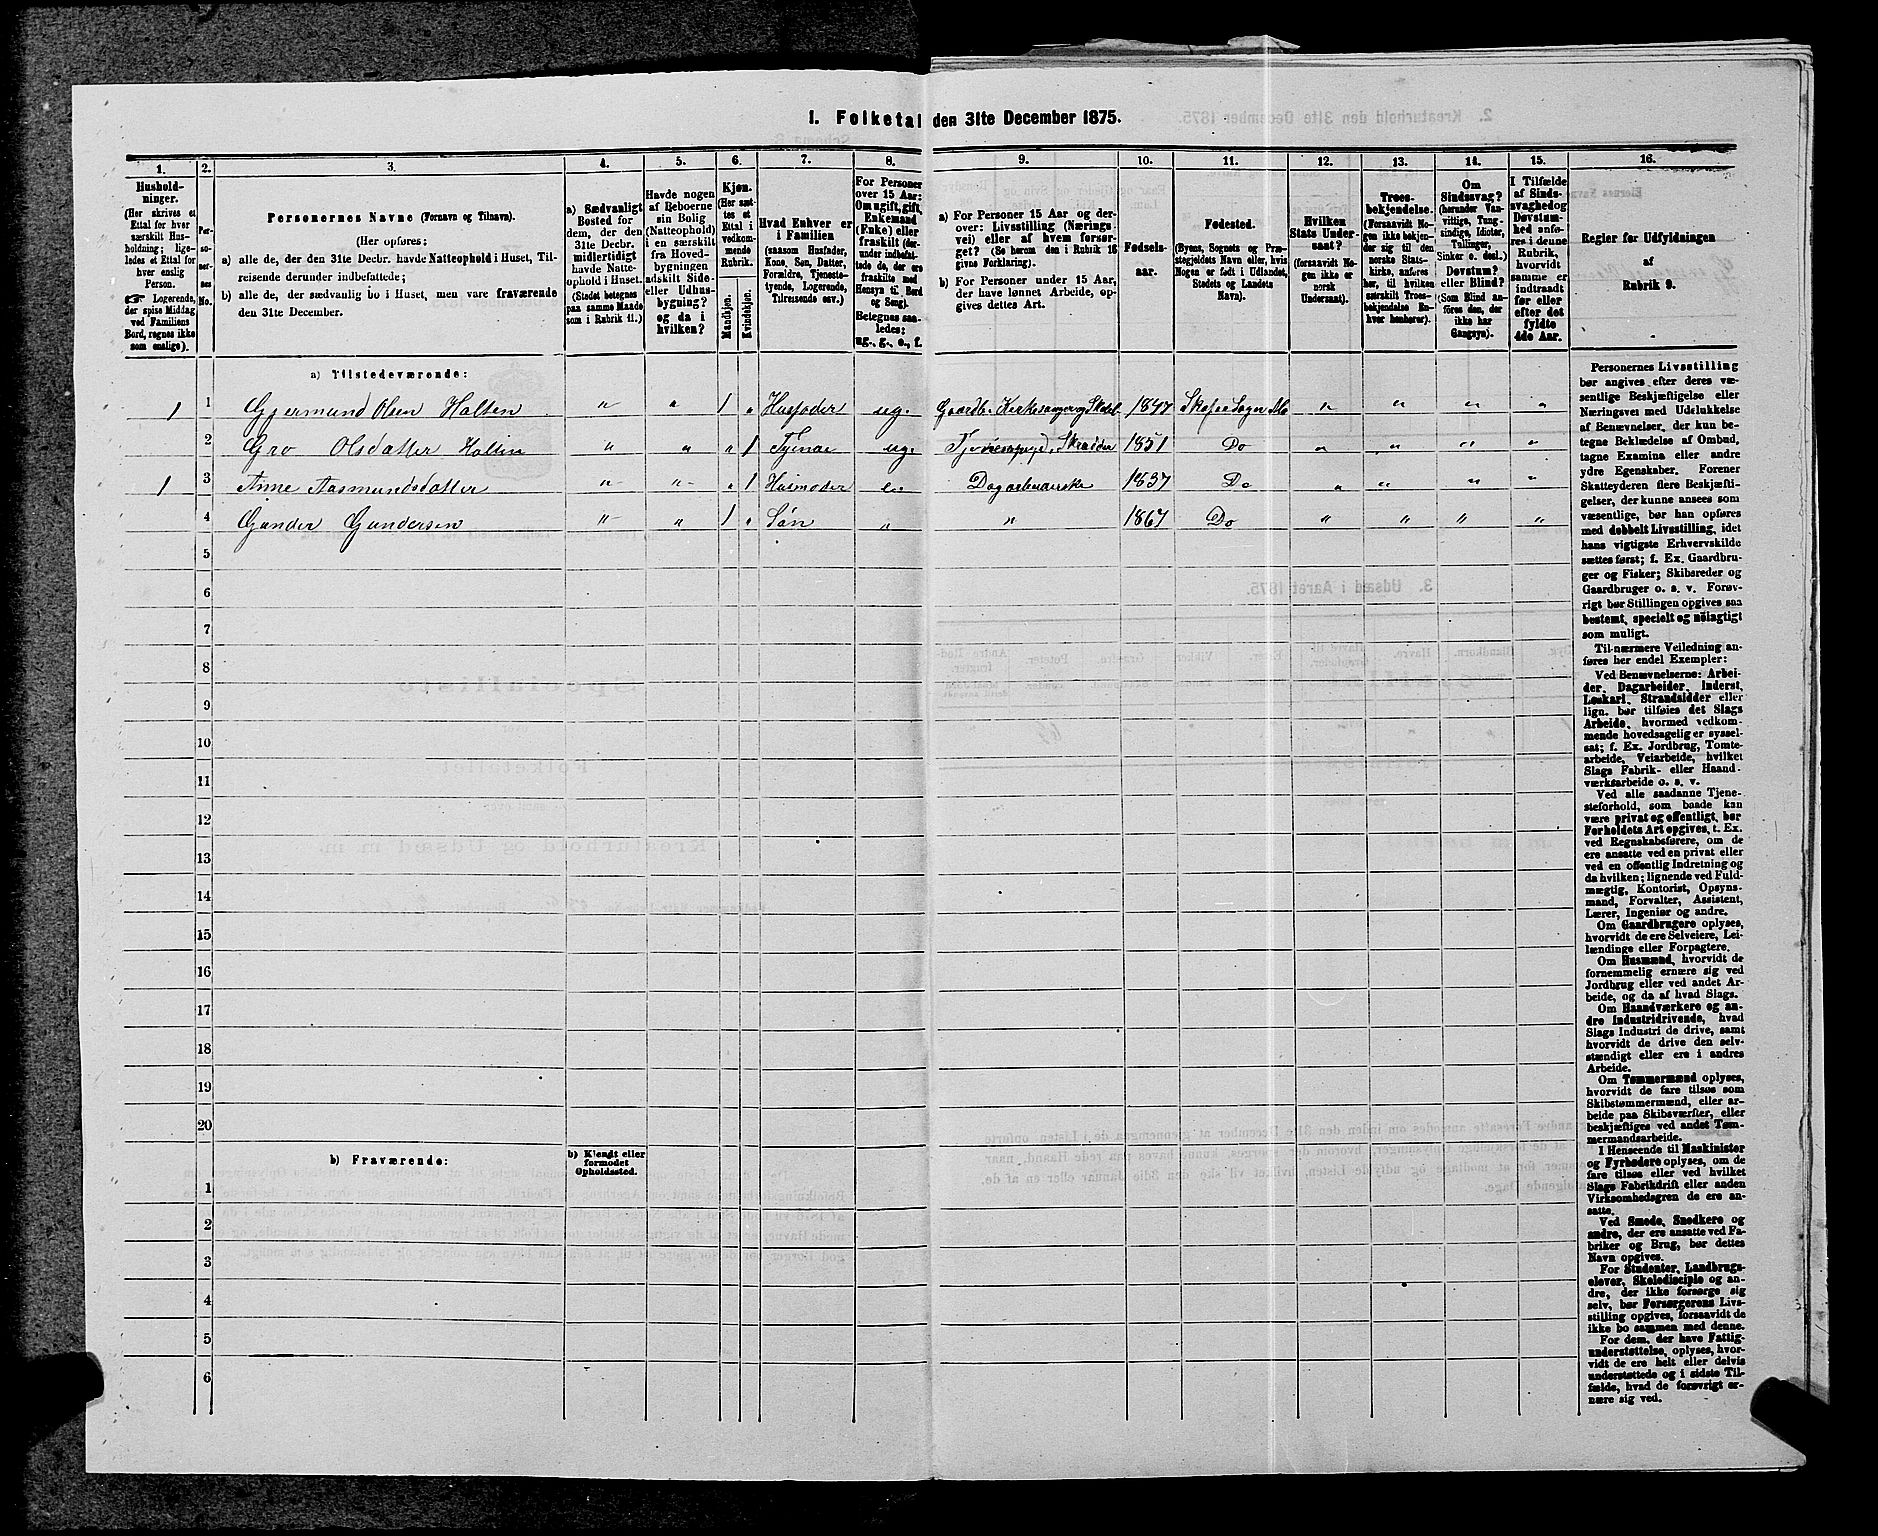 1. Folketal den 31te December 1875.
1. 2. 3. 4. 5. 6. 7. 8. 9. 10. 11. 12. 13. 14. 15. 16.
Hushold-
ninger.
(Her skrives et
Ettal for hver
særskilt Hus-
holdning; lige-
ledes et Ettal for
hver enslig
Person.
☞ Logerende,
der spise Middag
ved Familiens
Bord, regnes ikke
som enslige).
Per-
so-
ner-
nes
No.
Personernes Navne (Fornavn og Tilnavn).
(Her opføres:
a) alle de, der den 31te Decbr. havde Natteophold i Huset, Til-
reisende derunder indbefattede;
b) alle de, der sædvanlig bo i Huset, men vare fraværende
den 31te December.
a) Sædvanligt
Bosted for
dem, der den
31te Decbr.
midlertidigt
havde Natte-
ophold i Huset.
(Stedet betegnes
paa samme Maade
som i Rubrik 11.)
Havde nogen
af Beboerne
sin Bolig
(Natteophold)
i en særskilt
fra Hoved-
bygningen
adskilt Side-
eller Udhus-
bygning?
og da i
hvilken?
Kjøn.
(Her sæt-
tes et
Ettal i
vedkom-
mende
Rubrik.
Mandkjøn.
Kvindekjøn.
Hvad Enhver er
i Familien
(saasom Husfader,
Kone, Søn, Datter,
Forældre, Tjeneste-
tyende, Logerende,
Tilreisende osv.)
For Personer
over 15 Aar:
Om ugift, gift,
Enkemand
(Enke) eller
fraskilt (der-
under indbefat-
tede de, der ere
fraskilte med
Hensyn til Bord
og Seng).
Betegnes saa-
ledes:
ug., g., e., f.
a) For Personer 15 Aar og der-
over: Livsstilling (Nærings-
vei) eller af hvem forsør-
get? (Se herom den i Rubrik 16
givne Forklaring).
b) For Personer under 15 Aar,
der have lønnet Arbeide, op-
gives dettes Art.
Fødsels-
aar.
Fødested.
(Byens, Sognets og Præ-
stegjeldets Navn eller, hvis
Nogen er født i Udlandet,
Stedets og Landets
Navn).
Hvilken
Stats Under-
saat?
(forsaavidt No-
gen ikke er
norsk
Undersaat).
Troes-
bekjendelse.
(Forsaavidt No-
gen ikke bekjen-
der sig til den
norske Stats-
kirke, anføres
her, til hvilken
særskilt Troes-
bekjendelse En-
hver henhører).
Om
Sindssvag?
(herunder Van-
vittige, Tung-
sindige, Idioter,
Tullinger,
Sinker o. desl.)
Døvstum?
eller Blind?
(Som Blind an-
føres den, der
ikke har
Gangsyn).
I Tilfælde
af Sinds-
svaghed og
Døvstum-
hed anfø-
res i denne
Rubrik,
hvorvidt
samme er
indtraadt
før eller
efter det
fyldte
4de Aar.
Regler for Udfyldningen
af
Rubrik 9.
a) Tilstedeværende:
1 1 Gjermund Olsen Halten " " 1 " Husfader ug. Gaardb. Kirkesanger og Skolel. 1847 Skafse Sogn Mo " " " "
2 Gro Olsdatter Halten " " " 1 Tjener ug. Skrædder 1851 Do " " " "
1 3 Anne Aasmundsdatter " " " 1 Husmoder e. 1837 Do " " " "
4 Gunder Gundersen " " 1 " Søn " " 1867 Do " " " "
5
6
7
8
9
10
11
12
13
14
15
16
17
18
19
20
b) Fraværende:
b) Kjendt eller
formodet
Opholdssted.
1
2
3
4
5
6
Personernes Livsstilling
bør angives efter deres væ-
sentlige Beskjæftigelse eller
Næringsvei med Udelukkelse
af Benævnelser, der kun be-
tegne Beklædelse af Ombud,
tagne Examina eller andre
ydre Egenskaber. Forener
Skatteyderen flere Beskjæfti-
gelser, der kunne ansees som
væsentlige, bør han opføres
med dobbelt Livsstilling, idet
hans vigtigste Erhvervskilde
sættes først; f. Ex. Gaardbru-
ger og Fisker; Skibsreder og
Gaardbruger o. s. v. Forøv-
rigt bør Stillingen opgives saa
bestemt, specielt og nøiagtigt
som muligt.
Til nærmere Veiledning an-
føres her endel Exempler:
Ved Benævnelserne: Arbei-
der, Dagarbeider, Inderst,
Løskarl, Strandsidder eller
lign. bør tilføies det Slags
Arbeide, hvormed vedkom-
mende hovedsagelig er syssel-
sat; f. Ex. Jordbrug, Tomte-
arbeide, Veiarbeide, hvilket
Slags Fabrik- eller Haand-
værksarbeide o. s. v.
Ved alle saadanne Tjene-
steforhold, som baade kan
være privat og offentligt, bør
Forholdets Art opgives, t. Ex.
ved Regnskabsførere, om de
ere ansatte ved en privat eller
ved en offentlig Indretning og
da hvilken; lignende ved Fuld-
mægtig, Kontorist, Opsyns-
mand, Forvalter, Assistent,
Lærer, Ingeniør og andre.
Om Gaardbrugere oplyses,
hvorvidt de ere Selveiere, Lei-
lændinge eller Forpagtere.
Om Husmænd, hvorvidt de
fornemmelig ernære sig ved
Jordbrug eller ved andet Ar-
beide, og da af hvad Slags.
Om Haandværkere og an-
dre Industridrivende, hvad
Slags Industri de drive, samt
hvorvidt de drive den selv-
stændigt eller ere i andres
Arbeide.
Om Tømmermænd oplyses,
hvorvidt de fare tilsøs som
Skibstømmermænd, eller ar-
beide paa Skibsværfter, eller
beskjæftiges ved andet Tøm-
mermandsarbeide.
I Henseende til Maskinister
og Fyrbødere oplyses, om de
fare tilsøs eller ved hvilket
Slags Fabrikdrift eller anden
Virksomhedsgren de ere an-
satte.
Ved Smede, Snedkere og
andre, der ere ansatte ved Fa-
briker og Brug, bør dettes
Navn opgives.
For Studenter, Landbrugs-
elever, Skoledisciple og an-
dre, der ikke forsørge sig
selv, bør Forsørgerens Livs-
stilling opgives, forsaavidt de
ikke bo sammen med denne.
For dem, der have Fattig-
understøttelse, oplyses, hvor-
vidt de ere helt eller delvis
understøttede og i sidste Til-
fælde, hvad de forøvrigt er-
nære sig ved.